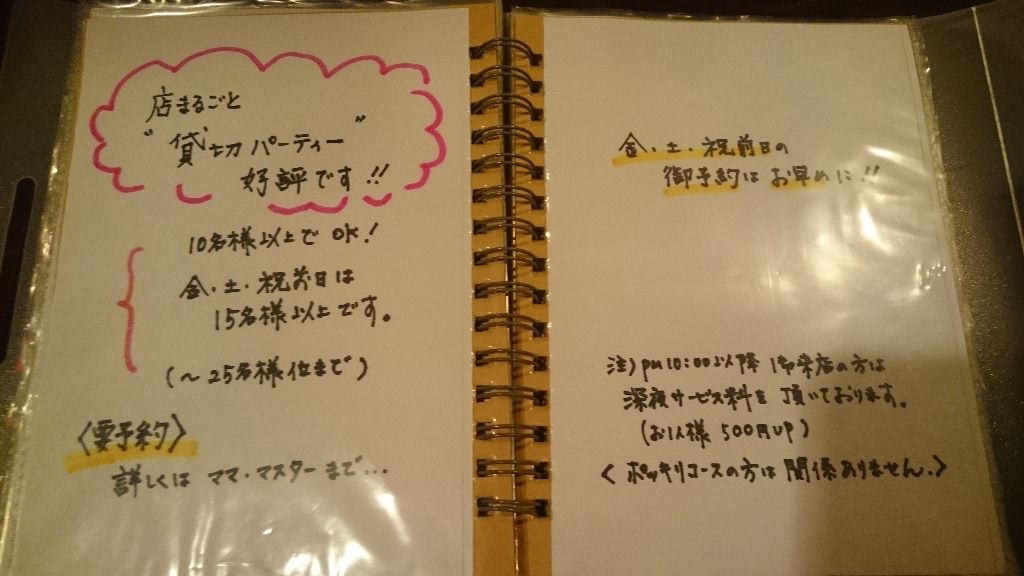 店まるごと
"貸切パーティー"
好評です!!
10名様以上でOK!
金・土・祝前日は
15名様以上です。
(～25名様位まで)
〈要予約〉
詳しくはママ・マスターまで...
金・土・祝前日の
御予約はお早めに!!
注)pm10:00以降 御来店の方は
深夜サービス料を頂いております。
(お1人様 500円UP)
〈ポッキリコースの方は関係ありません.〉